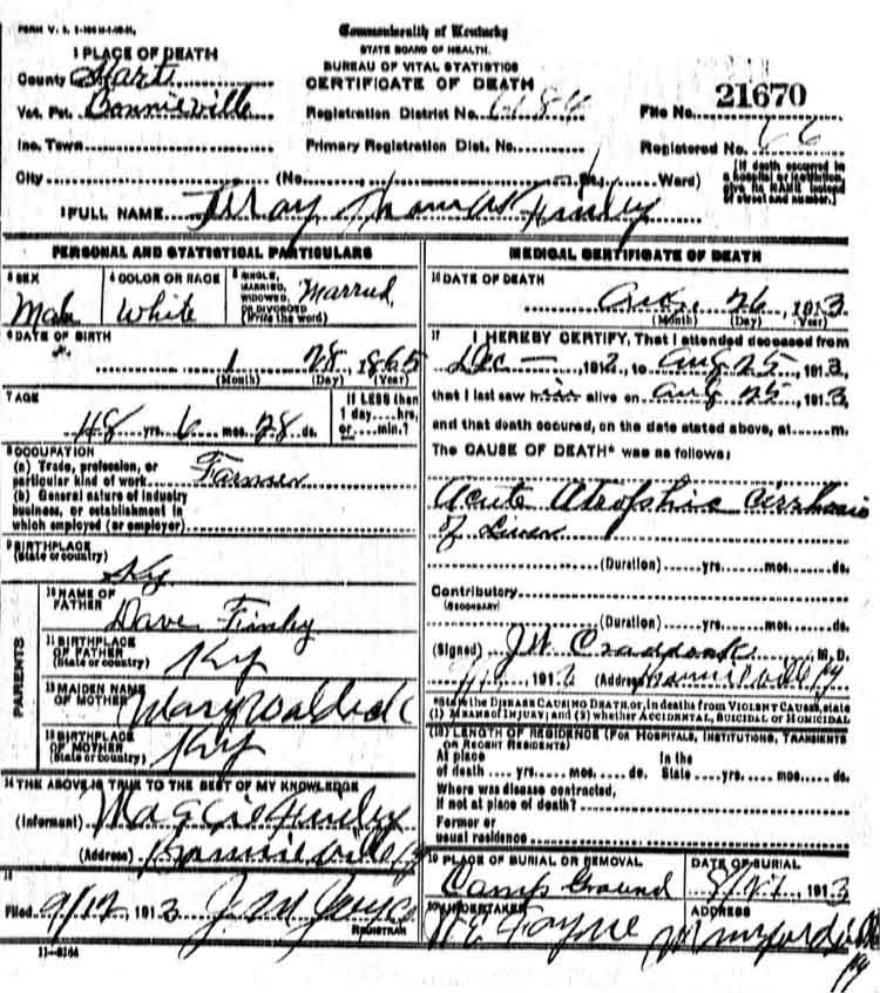 FORM V. S.
Commonwealth of Kentucky
STATE BOARD OF HEALTH.
BUREAU OF VITAL STATISTICS
CERTIFICATE OF DEATH
1 PLACE OF DEATH
County Hart
Vot. Pct. Bonnieville
Registration District No.
File No. 21670
Inc. Town
Primary Registration Dist. No.
Registered No. 66
City (No. St., Ward)
[If death occurred in a hospital or institution, give its NAME instead of street and number.]
2 FULL NAME Thomas Finley
PERSONAL AND STATISTICAL PARTICULARS
3 SEX
Male
4 COLOR OR RACE
White
5 SINGLE, MARRIED, WIDOWED, OR DIVORCED (Write the word)
Married
6 DATE OF BIRTH
1 28, 1865
(Month) (Day) (Year)
7 AGE
48 yrs. 6 mos. 28 ds.
If LESS than 1 day....hrs, or....min.?
8 OCCUPATION
(a) Trade, profession, or particular kind of work Farmer
(b) General nature of industry business, or establishment in which employed (or employer)
9 BIRTHPLACE
(State or country)
Ky
PARENTS
10 NAME OF FATHER
Dave Finley
11 BIRTHPLACE OF FATHER
(State or country)
Ky
12 MAIDEN NAME OF MOTHER
Mary
13 BIRTHPLACE OF MOTHER
(State or country)
Ky
14 THE ABOVE IS TRUE TO THE BEST OF MY KNOWLEDGE
(Informant) Maggie Finley
(Address) Bonnieville Ky
15
Filed 9/12, 1913
REGISTRAR
11-8184
MEDICAL CERTIFICATE OF DEATH
16 DATE OF DEATH
Aug. 26, 1913
(Month) (Day) (Year)
17 I HEREBY CERTIFY, That I attended deceased from
Dec —, 1912, to Aug 25, 1913,
that I last saw him alive on Aug 25, 1913,
and that death occured, on the date stated above, at....m.
The CAUSE OF DEATH* was as follows:
Acute Atrophic Cirrhosis
of Liver
(Duration) yrs. mos. ds.
Contributory
(SECONDARY)
(Duration) yrs. mos. ds.
(Signed) J.W. Craddock M. D.
191 (Address) Bonnieville Ky
*State the DISEASE CAUSING DEATH, or, in deaths from VIOLENT CAUSES, state
(1) MEANS of INJURY; and (2) whether ACCIDENTAL, SUICIDAL or HOMICIDAL
(18) LENGTH OF RESIDENCE (FOR HOSPITALS, INSTITUTIONS, TRANSIENTS OR RECENT RESIDENTS)
At place of death .... yrs. .... mos. .... ds.
In the State .... yrs. .... mos. .... ds.
Where was disease contracted,
if not at place of death?
Former or
usual residence
19 PLACE OF BURIAL OR REMOVAL
Camp Ground
DATE OF BURIAL
8/27, 1913
20 UNDERTAKER
Fayne
ADDRESS
Munfordville
Ky